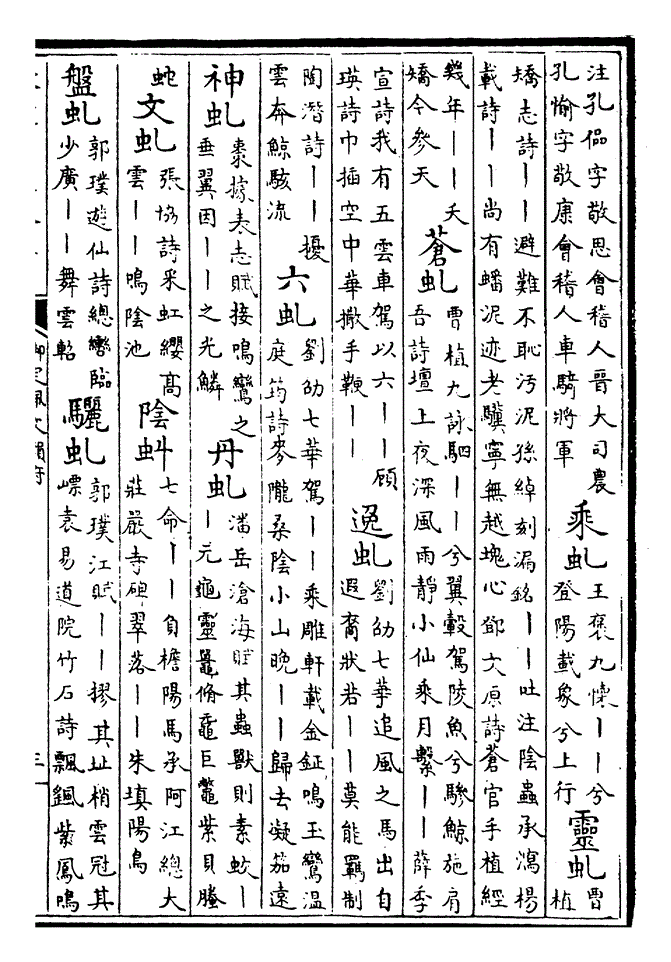 注孔偘字敬思會稽人晉大司農
孔愉字敬康會稽人車騎將軍
乘虬
王褒九懷丨丨兮
登陽載象兮上行
靈虬
曹
植
矯志詩丨丨避難不恥污泥孫綽刻漏銘丨丨吐注陰蟲承瀉楊
載詩丨丨尚有蟠泥迹老驥寧無越塊心鄧文原詩蒼官手植經
幾年丨丨夭
矯今參天
蒼虬
曹植九詠駟丨丨兮翼轂駕陵魚兮驂鯨施肩
吾詩壇上夜深風雨靜小仙乘月繫丨丨薛季
宣詩我有五雲車駕以六丨丨顧
瑛詩巾插空中華撒手鞭丨丨
逸虬
劉劭七華追風之馬出自
遐裔狀若丨丨莫能羈制
陶潛詩丨丨擾
雲奔鯨駭流
六虬
劉劭七華駕丨丨乘雕軒載金鉦鳴玉鸞溫
庭筠詩麥隴桑陰小山晚丨丨歸去凝笳遠
神虬
棗據表志賦接鳴鸞之
垂翼因丨丨之光鱗
丹虬
潘岳滄海賦其蟲獸則素蛟丨
丨元龜靈鼉脩黿巨鼈紫貝螣
蛇
文虬
張協詩采虹纓高
雲丨丨鳴陰池
陰虯
七命丨丨負檐陽馬承阿江總大
莊嚴寺碑翠落丨丨朱填陽鳥
盤虬
郭璞遊仙詩總轡臨
少廣丨丨舞雲軺
驪虬
郭璞江賦丨丨摎其址梢雲冠其
㟽袁易道院竹石詩飄飄紫鳳鳴
御定佩文韻府
三